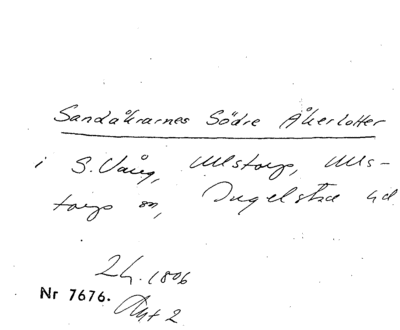 Sandåkrarnes Södre Åkerlotter
i S. Vång, Ullstorps, Ulls-
torps sn, Ingelstad hd
Lh. 1806
Nr 7676.
Akt 2